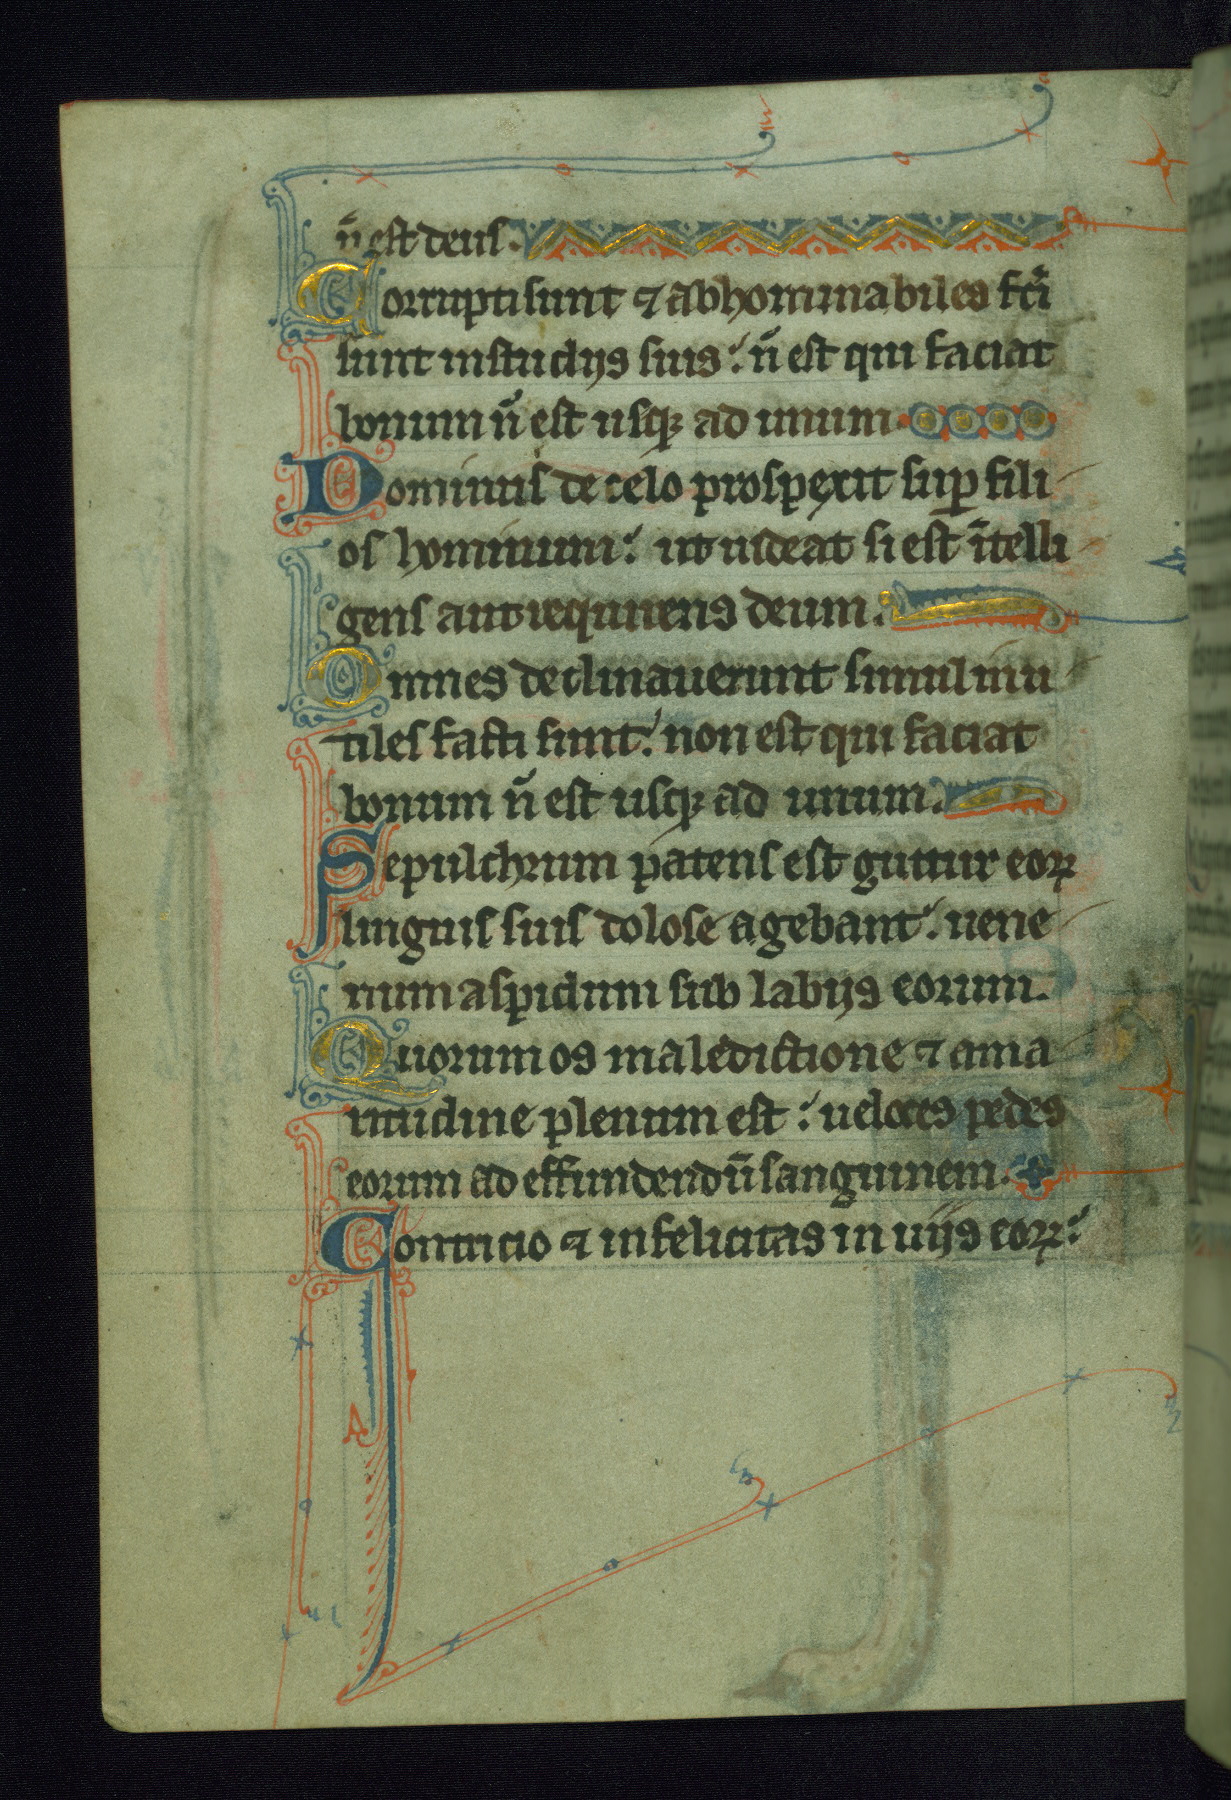 n̄ est deus.
Corrupti sunt ⁊ abhominabiles fc̄i
sunt in studijs suis: n̄ est qui faciat
bonum n̄ est usq; ad unum.
Dominus de celo prospexit suꝑ fili
os hominum: ut uideat si est ītelli
gens aut requirens deum.
Omnes declinauerunt simul inu
tiles facti sunt: non est qui faciat
bonum n̄ est usq; ad unum.
Sepulchrum patens est guttur eoꝝ
linguis suis dolose agebant: uene
num aspidum sub labijs eorum.
Quorum os maledictione ⁊ ama
ritudine plenum est: ueloces pedes
eorum ad effundendū sanguinem.
Contricio ⁊ infelicitas in uijs eoꝝ: